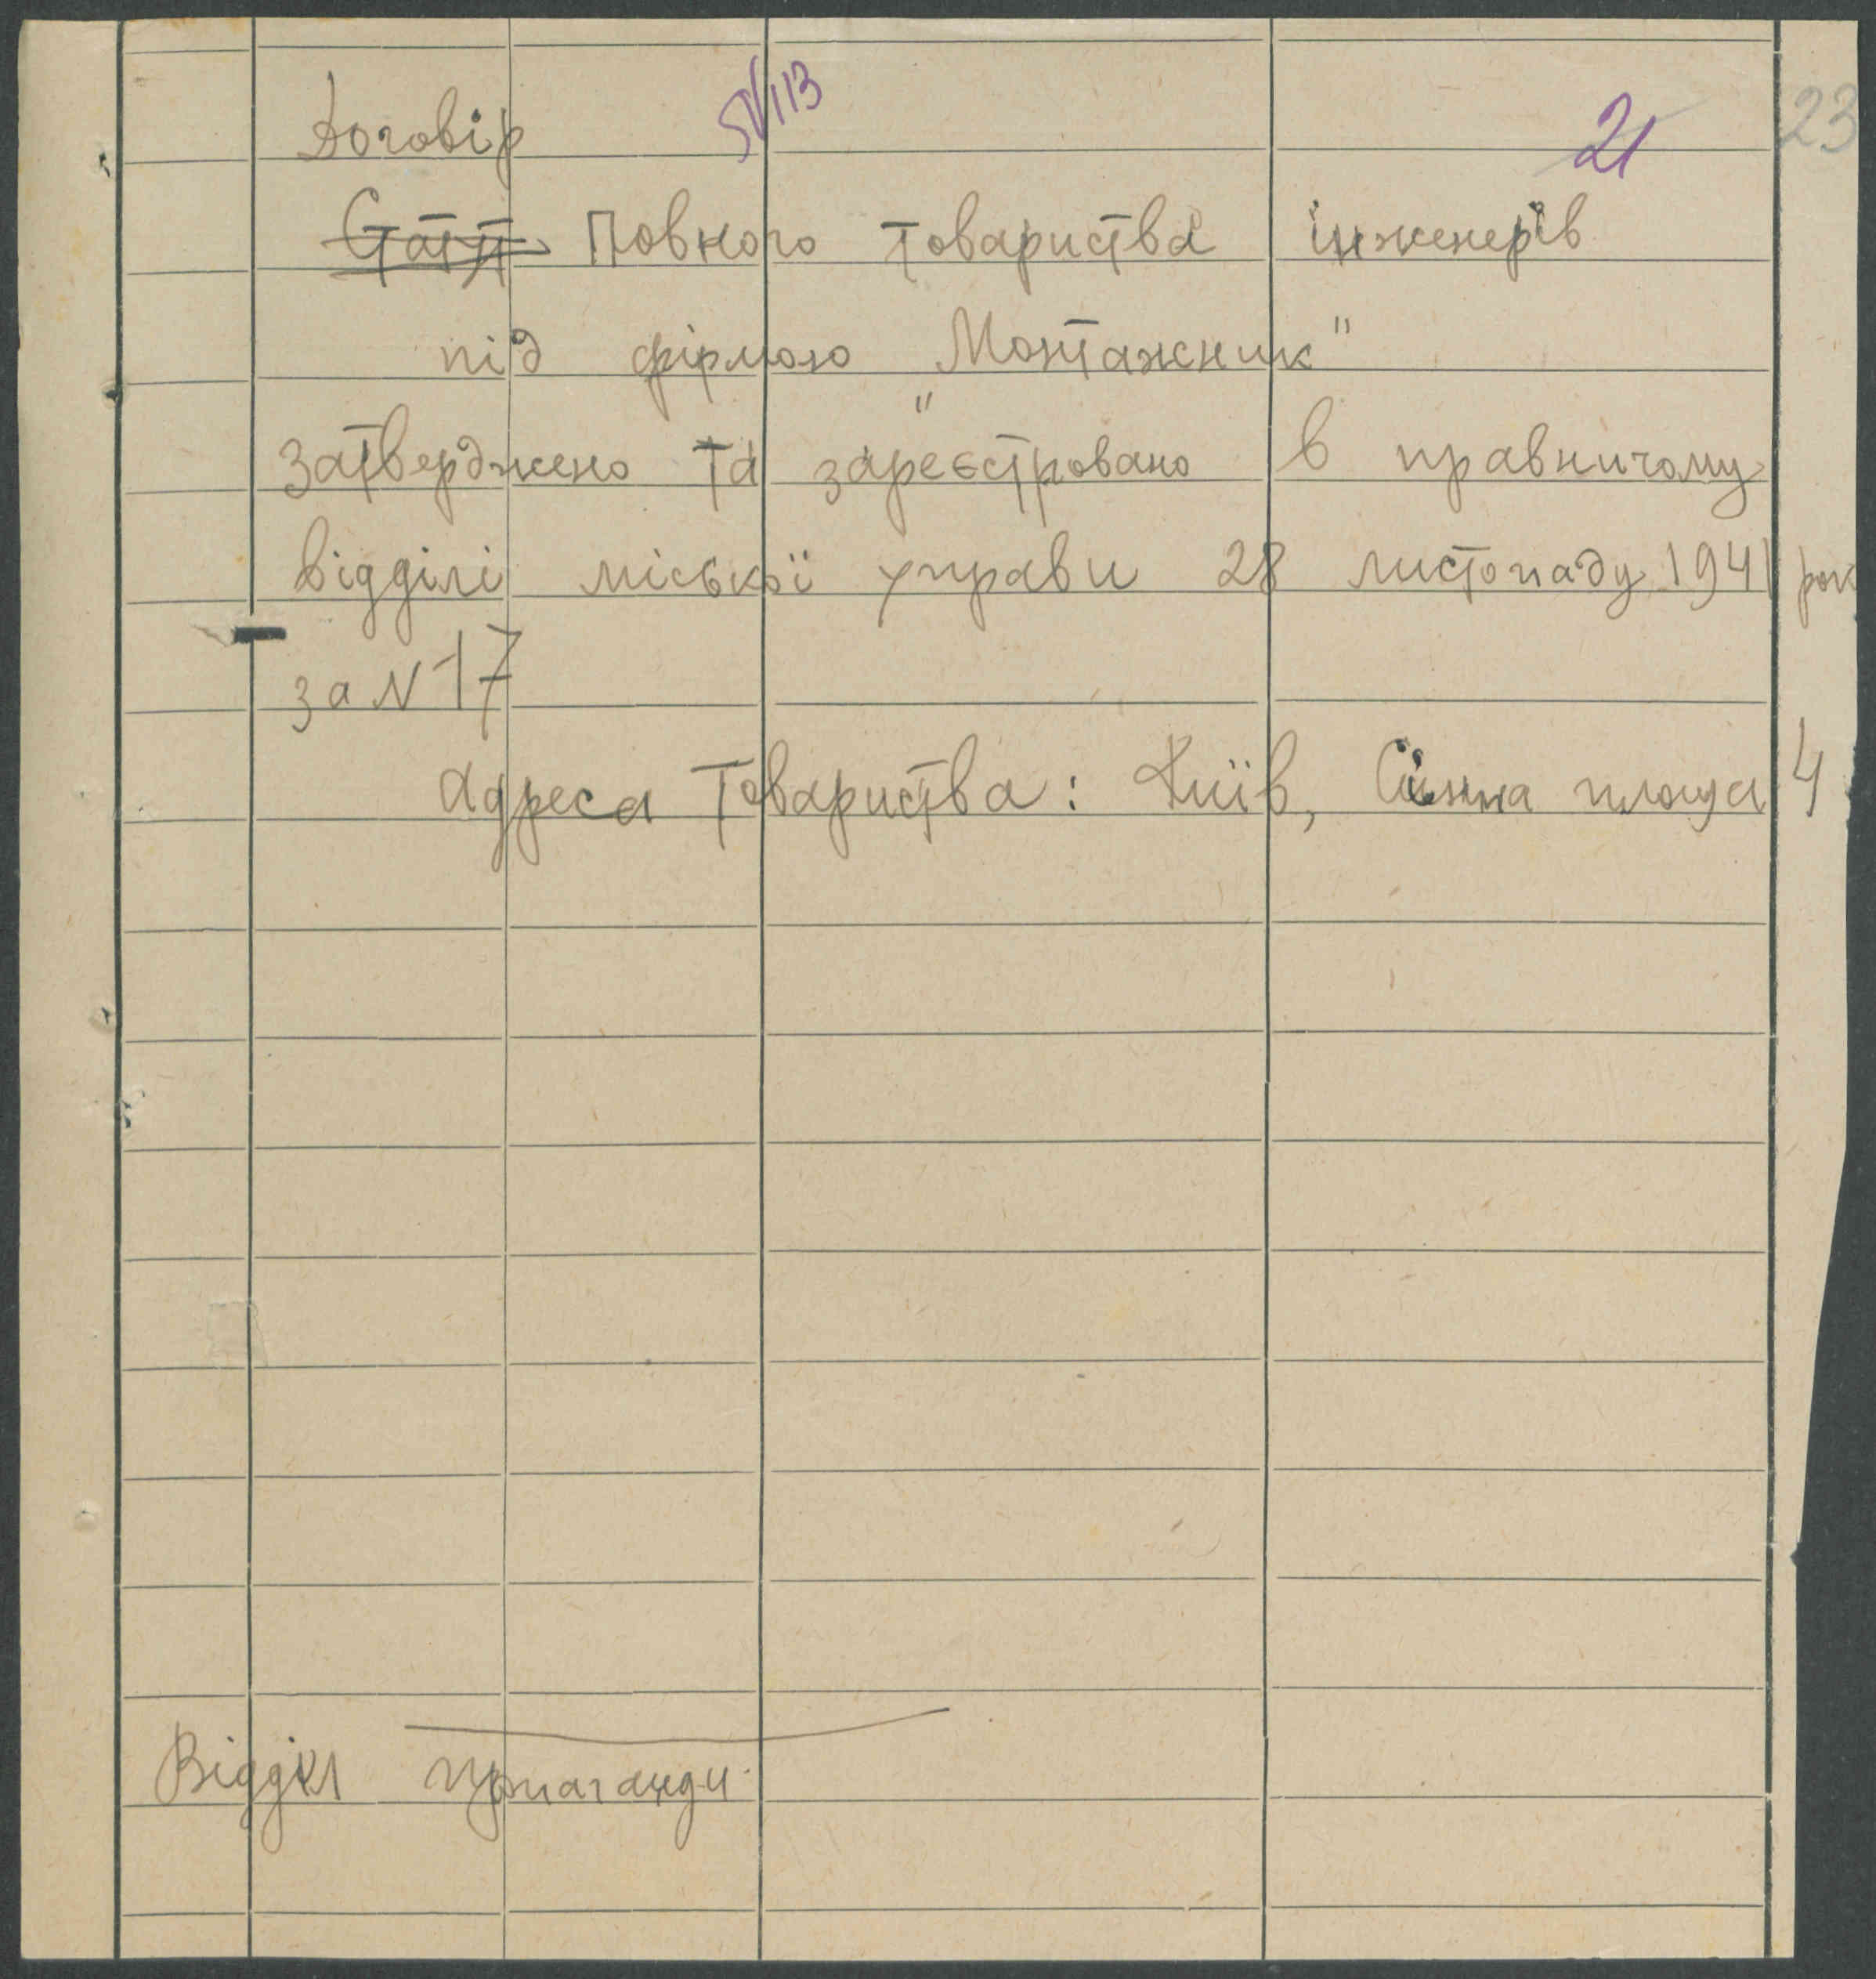 Договір
21
23
Повного товариства інженерів
під фірмою "Монтажник"
Затверджено та зареєстровано в правничому
відділі міської управи 28 листопаду 1941 рок
за N 17
Адреса Товариства: Київ, Сінна площа 4
Відділ пропаганди